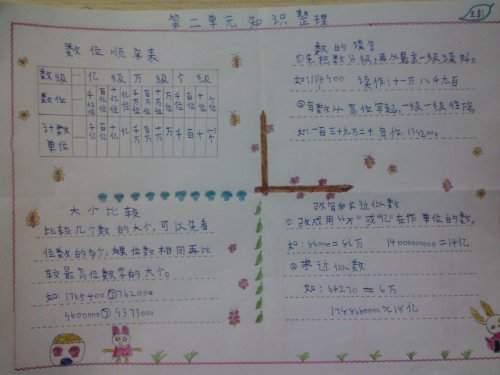 第二单元知识整理
数位顺序表
数级 …… 亿级 万级 个级
数位 …… 千亿位 百亿位 十亿位 亿位 千万位 百万位 十万位 万位 千位 百位 十位 个位
计数单位 …… 千亿 百亿 十亿 亿 千万 百万 十万 万 千 百 十 个
大小比较
比较几个数的大小,可以先看
位数的多少,位数相同再比
较最高位数字的大小。
数的读写
①先把数分级,再从最高一级读起。
读作:十一万八千九百
②写数从高位写起,一级一级往下写。
如:一百三十九万二千 写作:1392000
改写和求近似数
①改成用"万"或"亿"作单位的数。
如:860000=86万 1400000000=14亿
②求近似数
如:64270≈6万